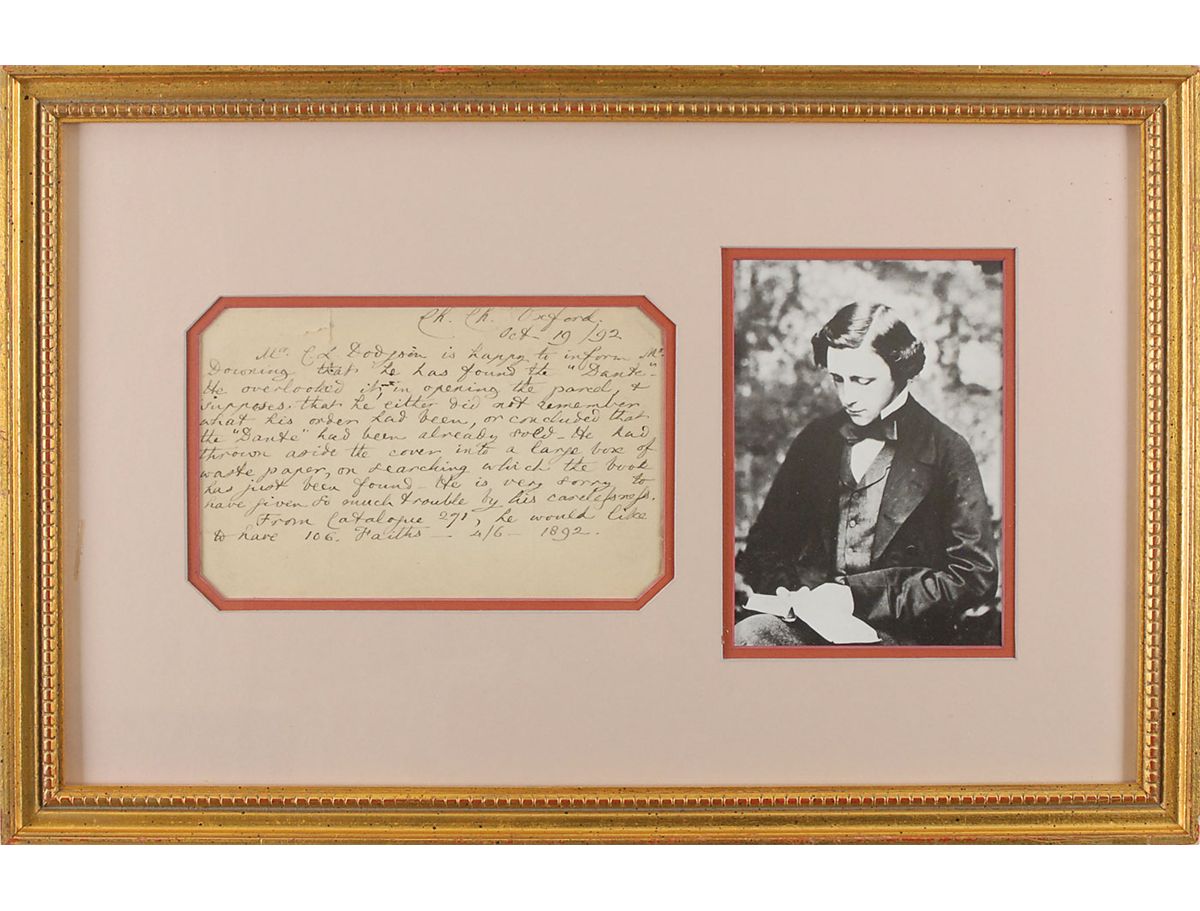 Ch. Ch. Oxford.
Oct 19/92
Mr. C L Dodgson is happy to inform Mr.
Downing that he has found the "Dante" -
He overlooked it, in opening the parcel, &
supposes that he either did not remember
what his order had been, or concluded that
the "Dante" had been already sold - He had
thrown aside the cover into a large box of
waste paper, on searching which the book
has just been found - He is very sorry to
have given so much trouble by his carelessness.
From Catalogue 271, he would like
to have 106. Faiths - 4/6 - 1892.